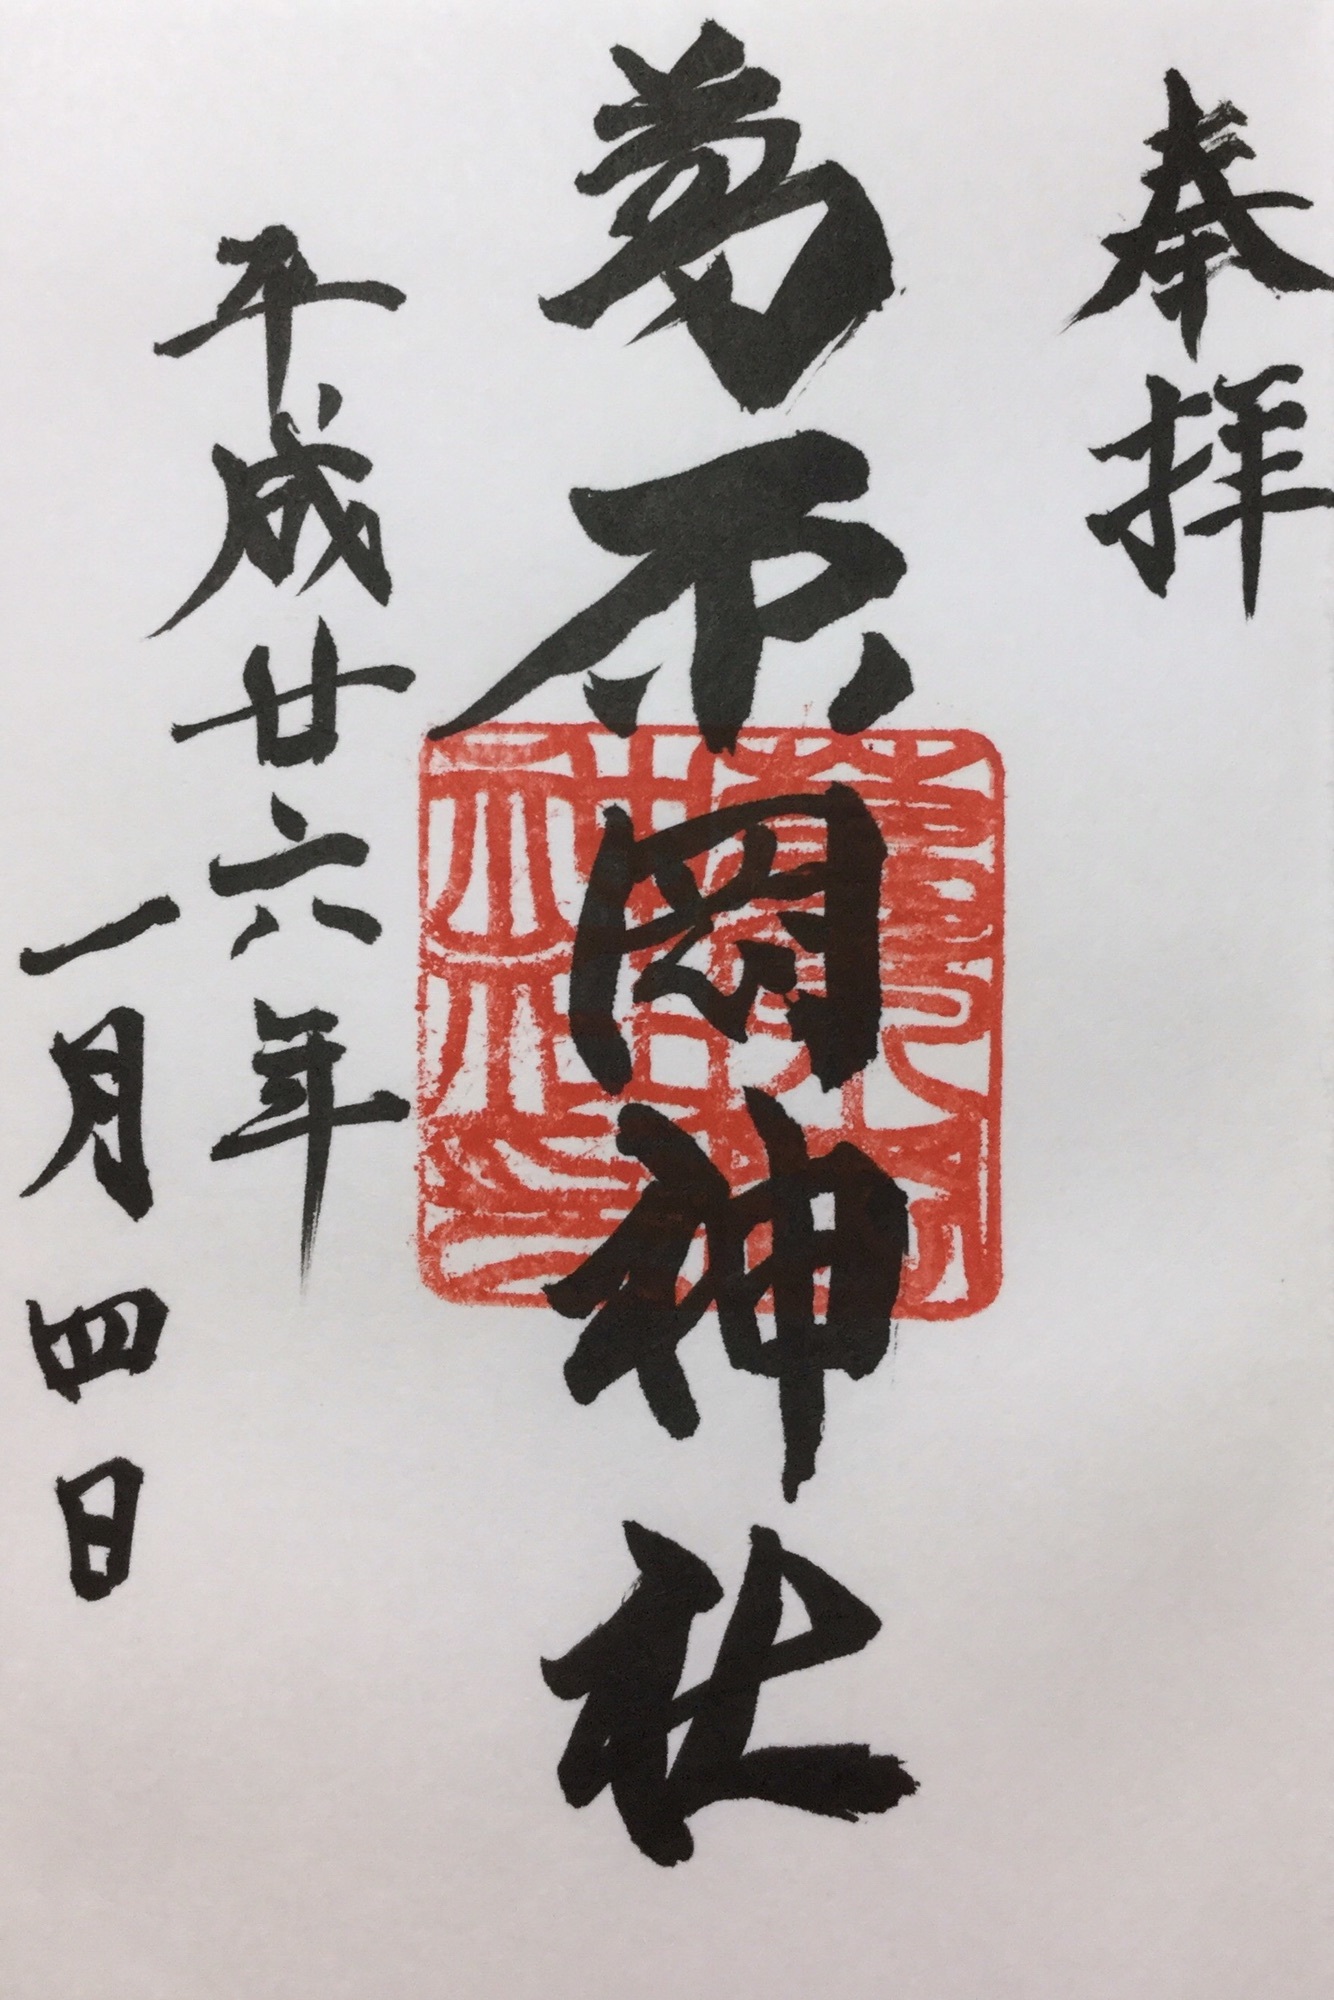 奉拝
葛原岡神社
平成廿六年
一月四日